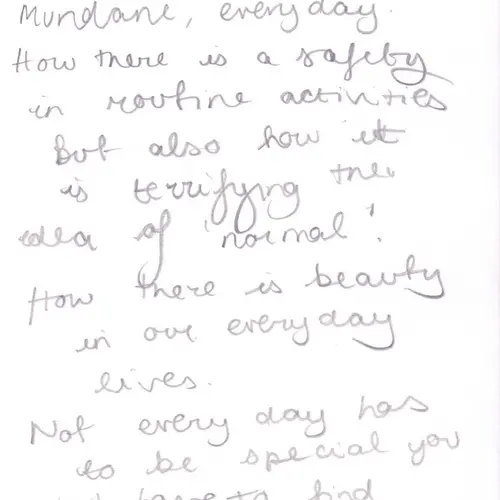 Mundane, everyday.
How there is a safety
in routine activities
But also how it
is terrifying the
idea of 'normal'.
How there is beauty
in our everyday
lives.
Not every day has
to be special you
have to find